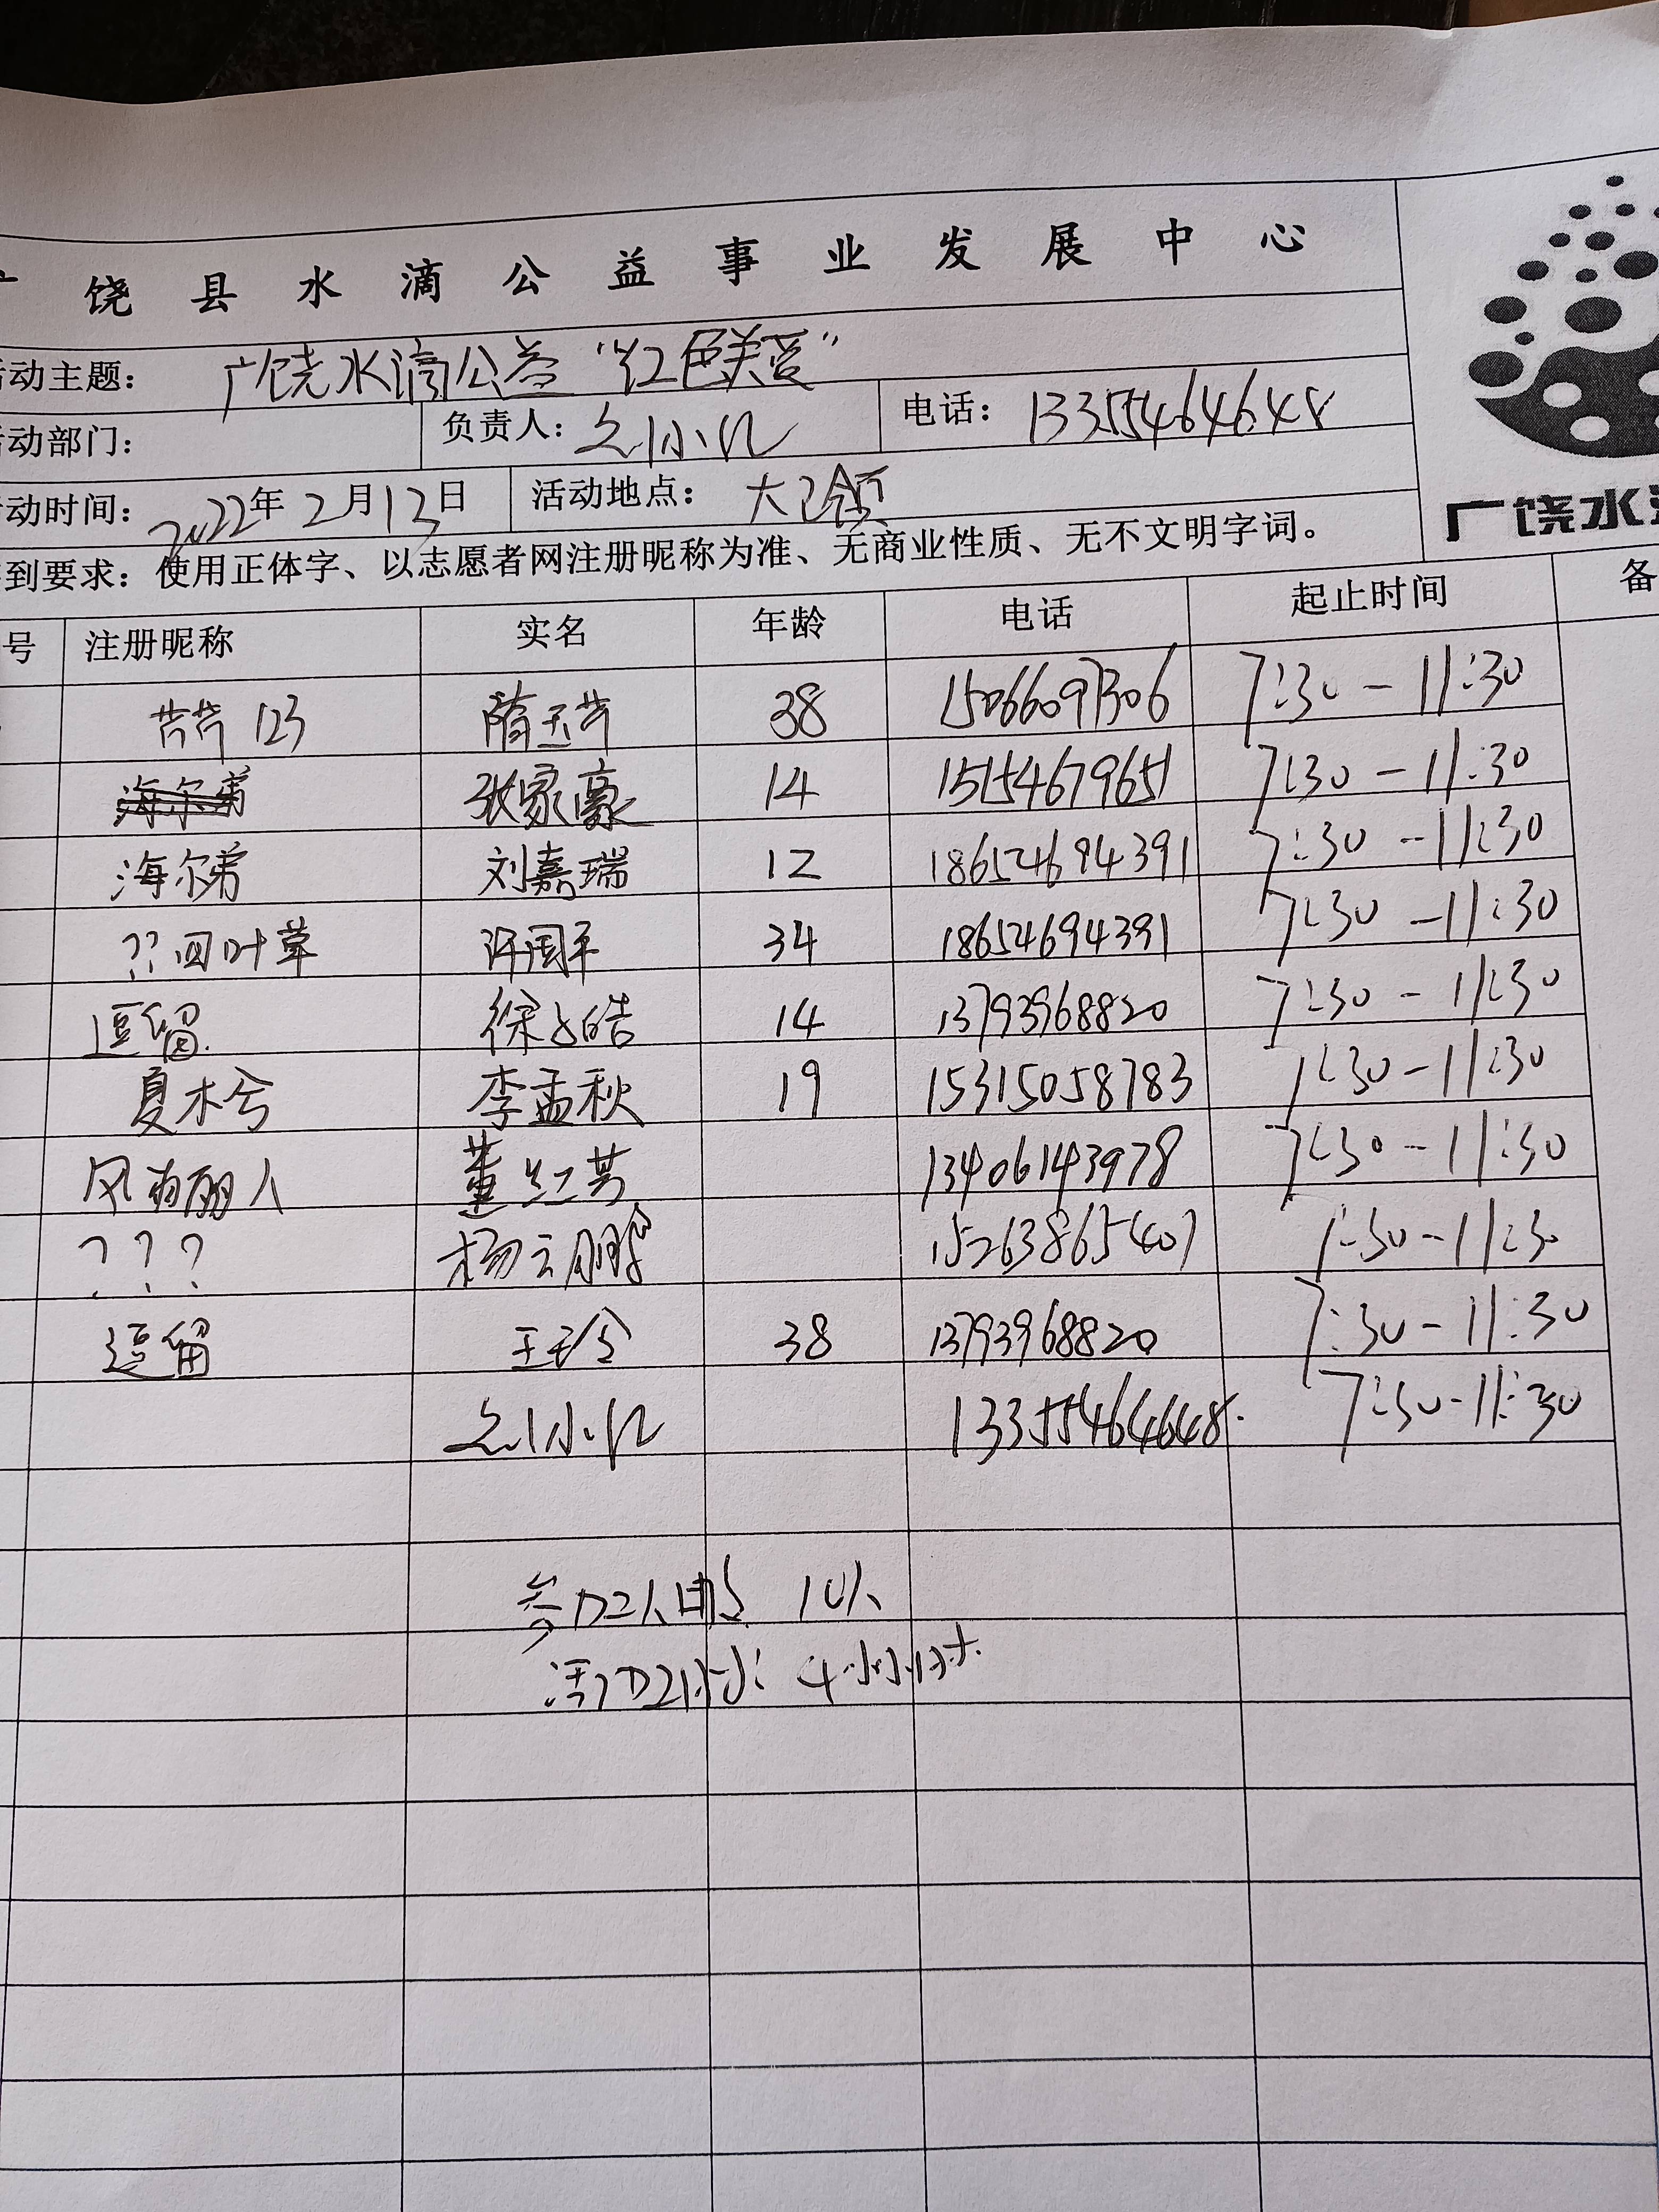 饶县水滴公益事业发展中心
活动主题： 广饶水滴公益“红色关爱”
活动部门： 负责人： 电话： 13355464648
活动时间： 2022年2月13日 活动地点：
到要求：使用正体字、以志愿者网注册昵称为准、无商业性质、无不文明字词。
广饶水
号 注册昵称 实名 年龄 电话 起止时间 备
芹芹123 隋玉芹 38 15066097306 7:30-11:30
海尔弟 张家豪 14 15154679651 7:30-11:30
海尔弟 刘嘉瑞 12 18652694391 7:30-11:30
??四叶草 许周平 34 18654694391 7:30-11:30
逗留. 14 13793968820 7:30-11:30
夏木兮 李孟秋 19 15315058783 7:30-11:30
董红芳 13406143978 7:30-11:30
??? 杨云鹏 15263865407 7:30-11:30
逗留 王玲 38 13793968820 7:30-11:30
13355464648. 7:30-11:30
10人
4小时